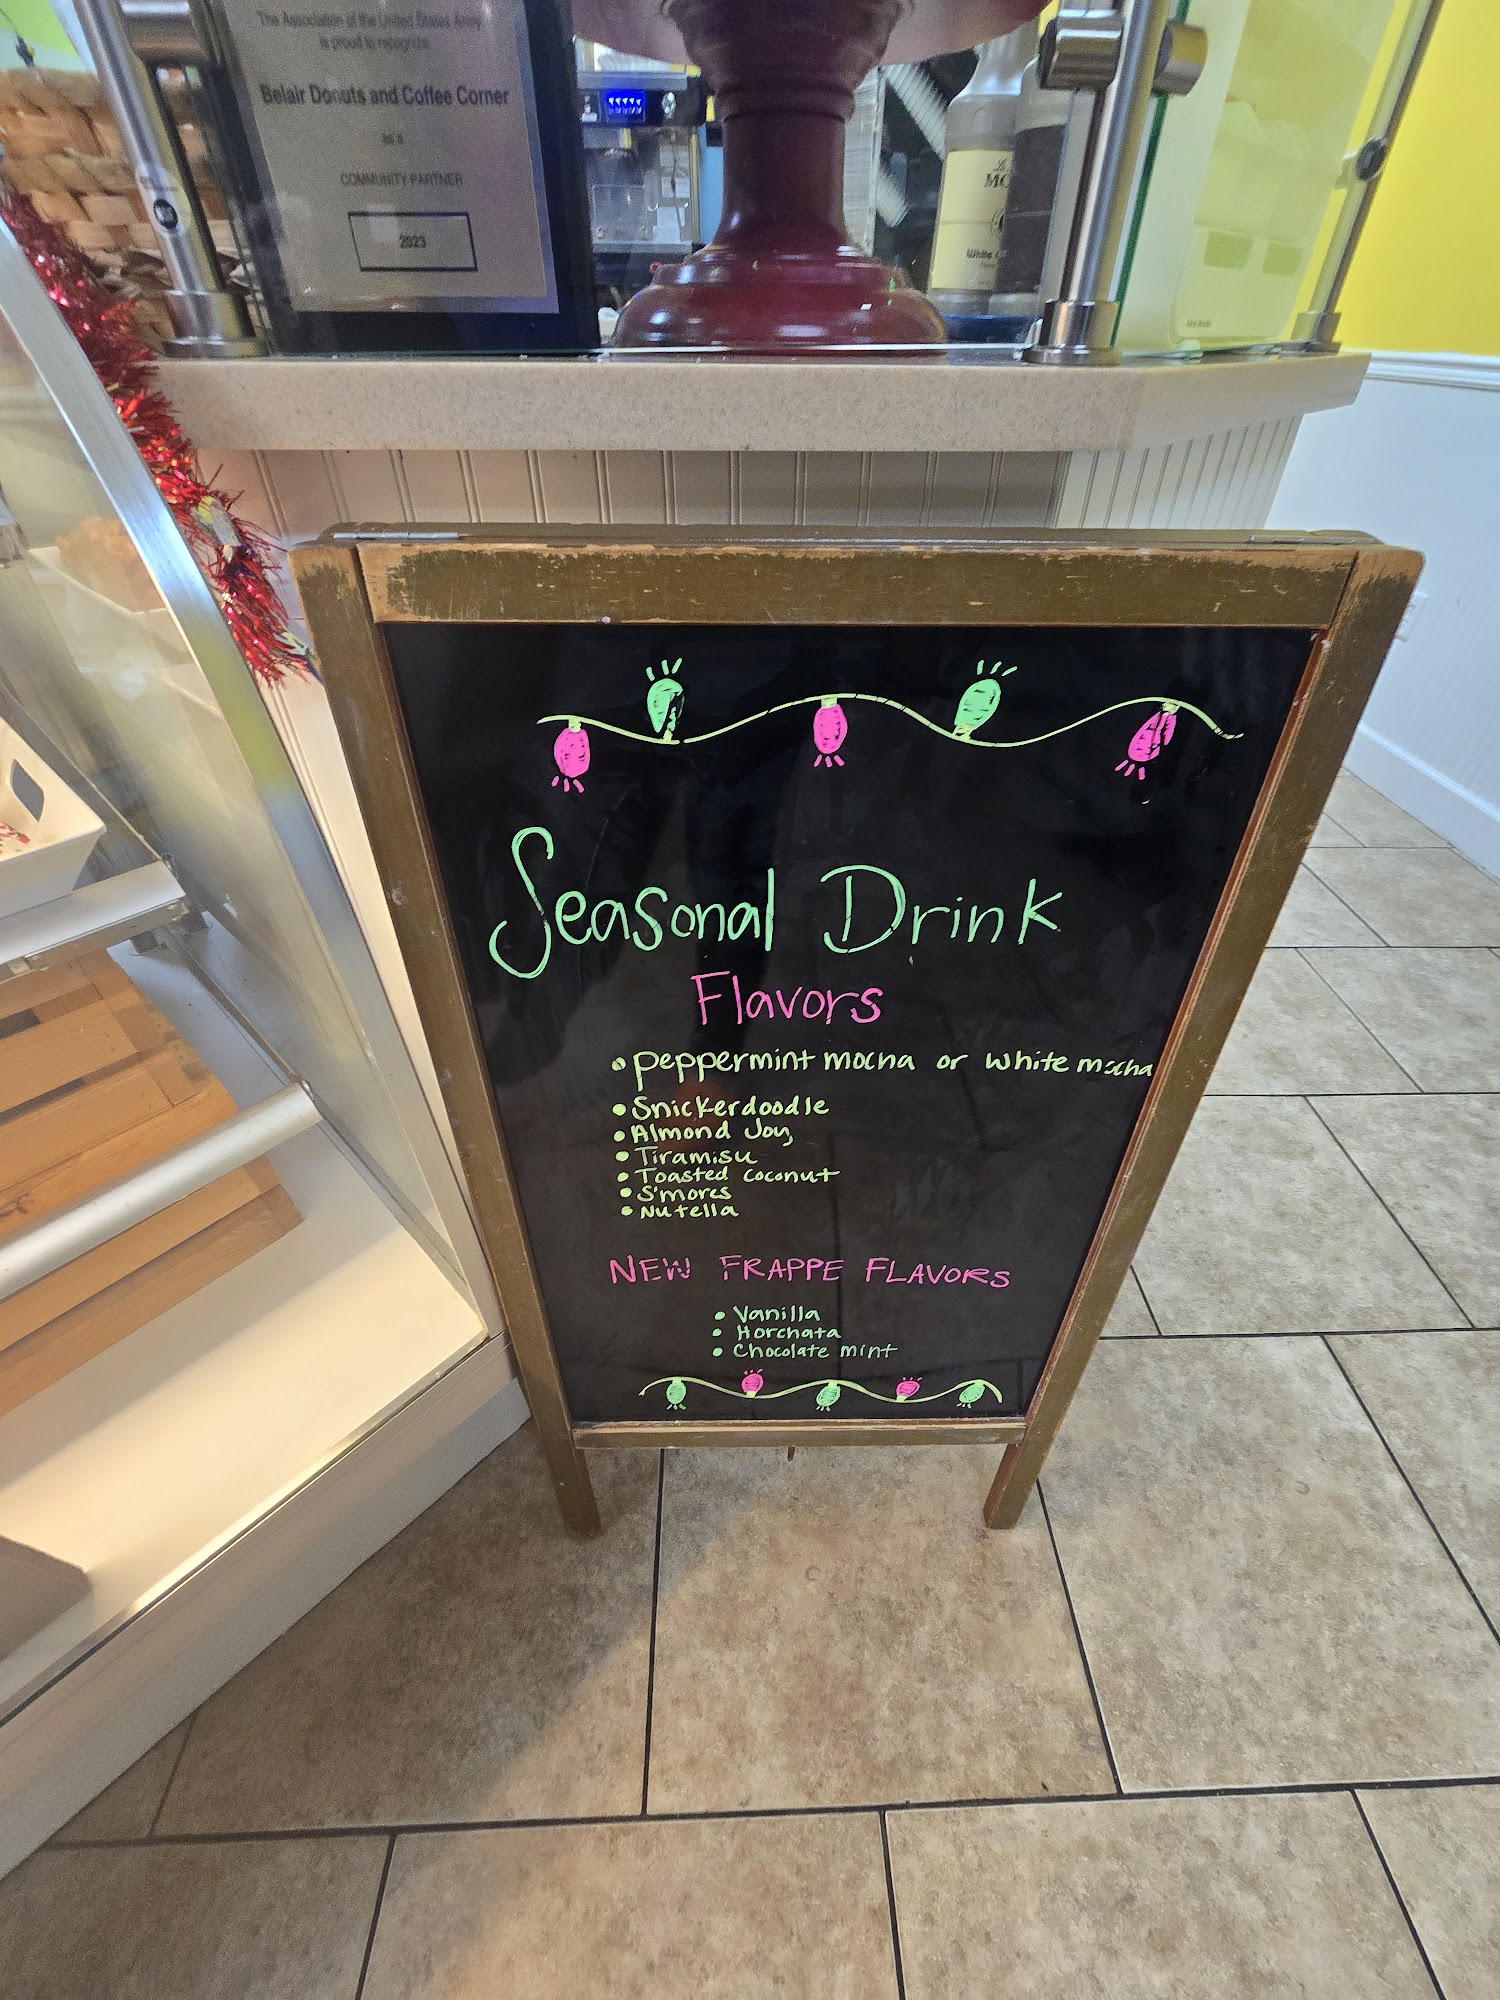 The Association of the United States Army
is proud to recognize
Belair Donuts and Coffee Corner
as a
COMMUNITY PARTNER
2023
White
Seasonal Drink
Flavors
• peppermint mocha or white mocha
• Snickerdoodle
• Almond Joy
• Tiramisu
• Toasted coconut
• S'mores
• Nutella
NEW FRAPPE FLAVORS
• Vanilla
• Horchata
• Chocolate mint